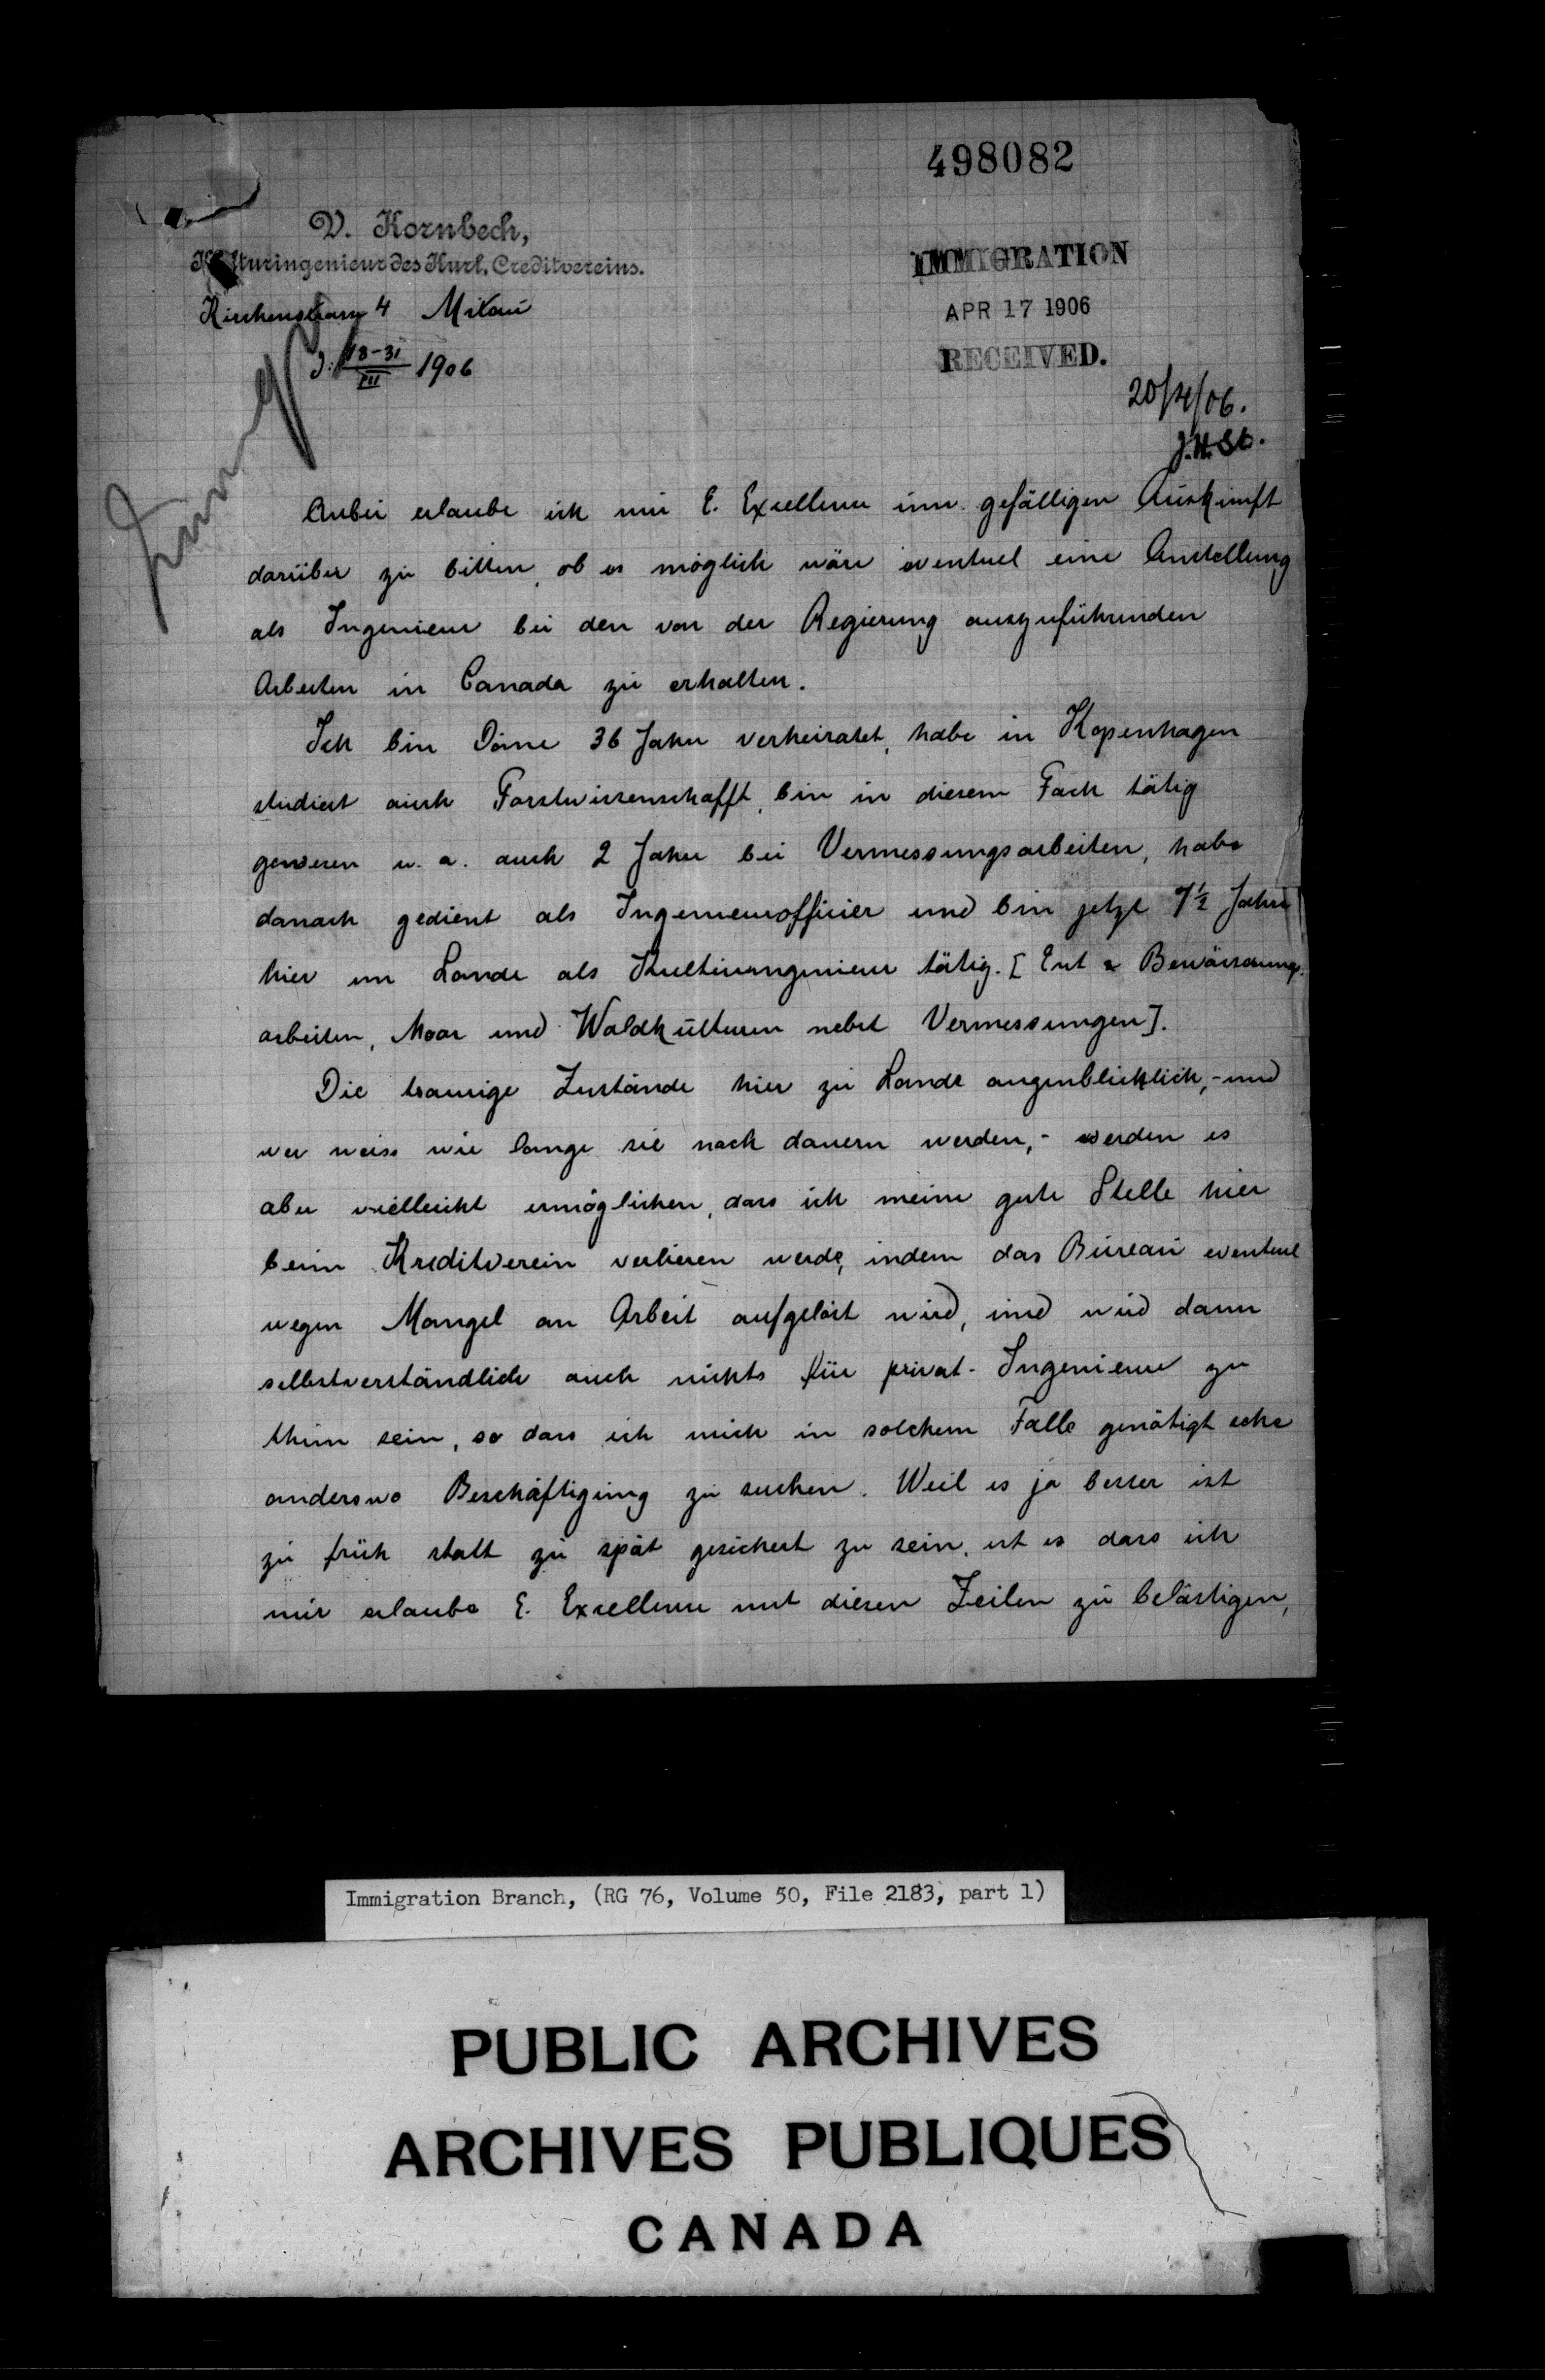 498082
V. Kornbech,
Kulturingenieur des Kurl. Creditvereins.
Kirchenstrasse 4 Mitau
d. 18-31/III 1906
IMMIGRATION
APR 17 1906
RECEIVED.
20/4/06.
Anbei erlaube ich mir E. Excellence um gefälligen Auskunft
darüber zu bitten, ob es möglich wäre eventuel eine Anstellung
als Ingenieur bei den von der Regierung auszuführenden
Arbeiten in Canada zu erhalten.
Ich bin Däne 36 Jahre verheiratet, habe in Kopenhagen
studiert auch Forstwissenschafft, bin in diesem Fach tätig
gewesen u. a. auch 2 Jahre bei Vermessungsarbeiten, habe
danach gedient als Ingenieurofficier und bin jetzt 7½ Jahre
hier im Lande als Kulturingenieur tätig. [Ent & Bewässerungs-
arbeiten, Moor und Waldkulturen nebst Vermessungen].
Die traurige Zustände hier zu Lande augenblicklich, - und
wer weiss wie lange sie noch dauern werden, - werden es
aber vielleicht ermöglichen, dass ich meine gute Stelle hier
beim Kreditverein verlieren werde, indem das Bureau eventuel
wegen Mangel an Arbeit aufgelöst wird, und wird dann
selbstverständlich auch nichts für privat-Ingenieure zu
thun sein, so dass ich mich in solchem Falle genötigt sehe
anderswo Beschäftigung zu suchen. Weil es ja besser ist
zu früh statt zu spät gesichert zu sein, ist es dass ich
mir erlaube E. Excellence mit diesen Zeilen zu belästigen,
Immigration Branch, (RG 76, Volume 50, File 2183, part 1)
PUBLIC ARCHIVES
ARCHIVES PUBLIQUES
CANADA